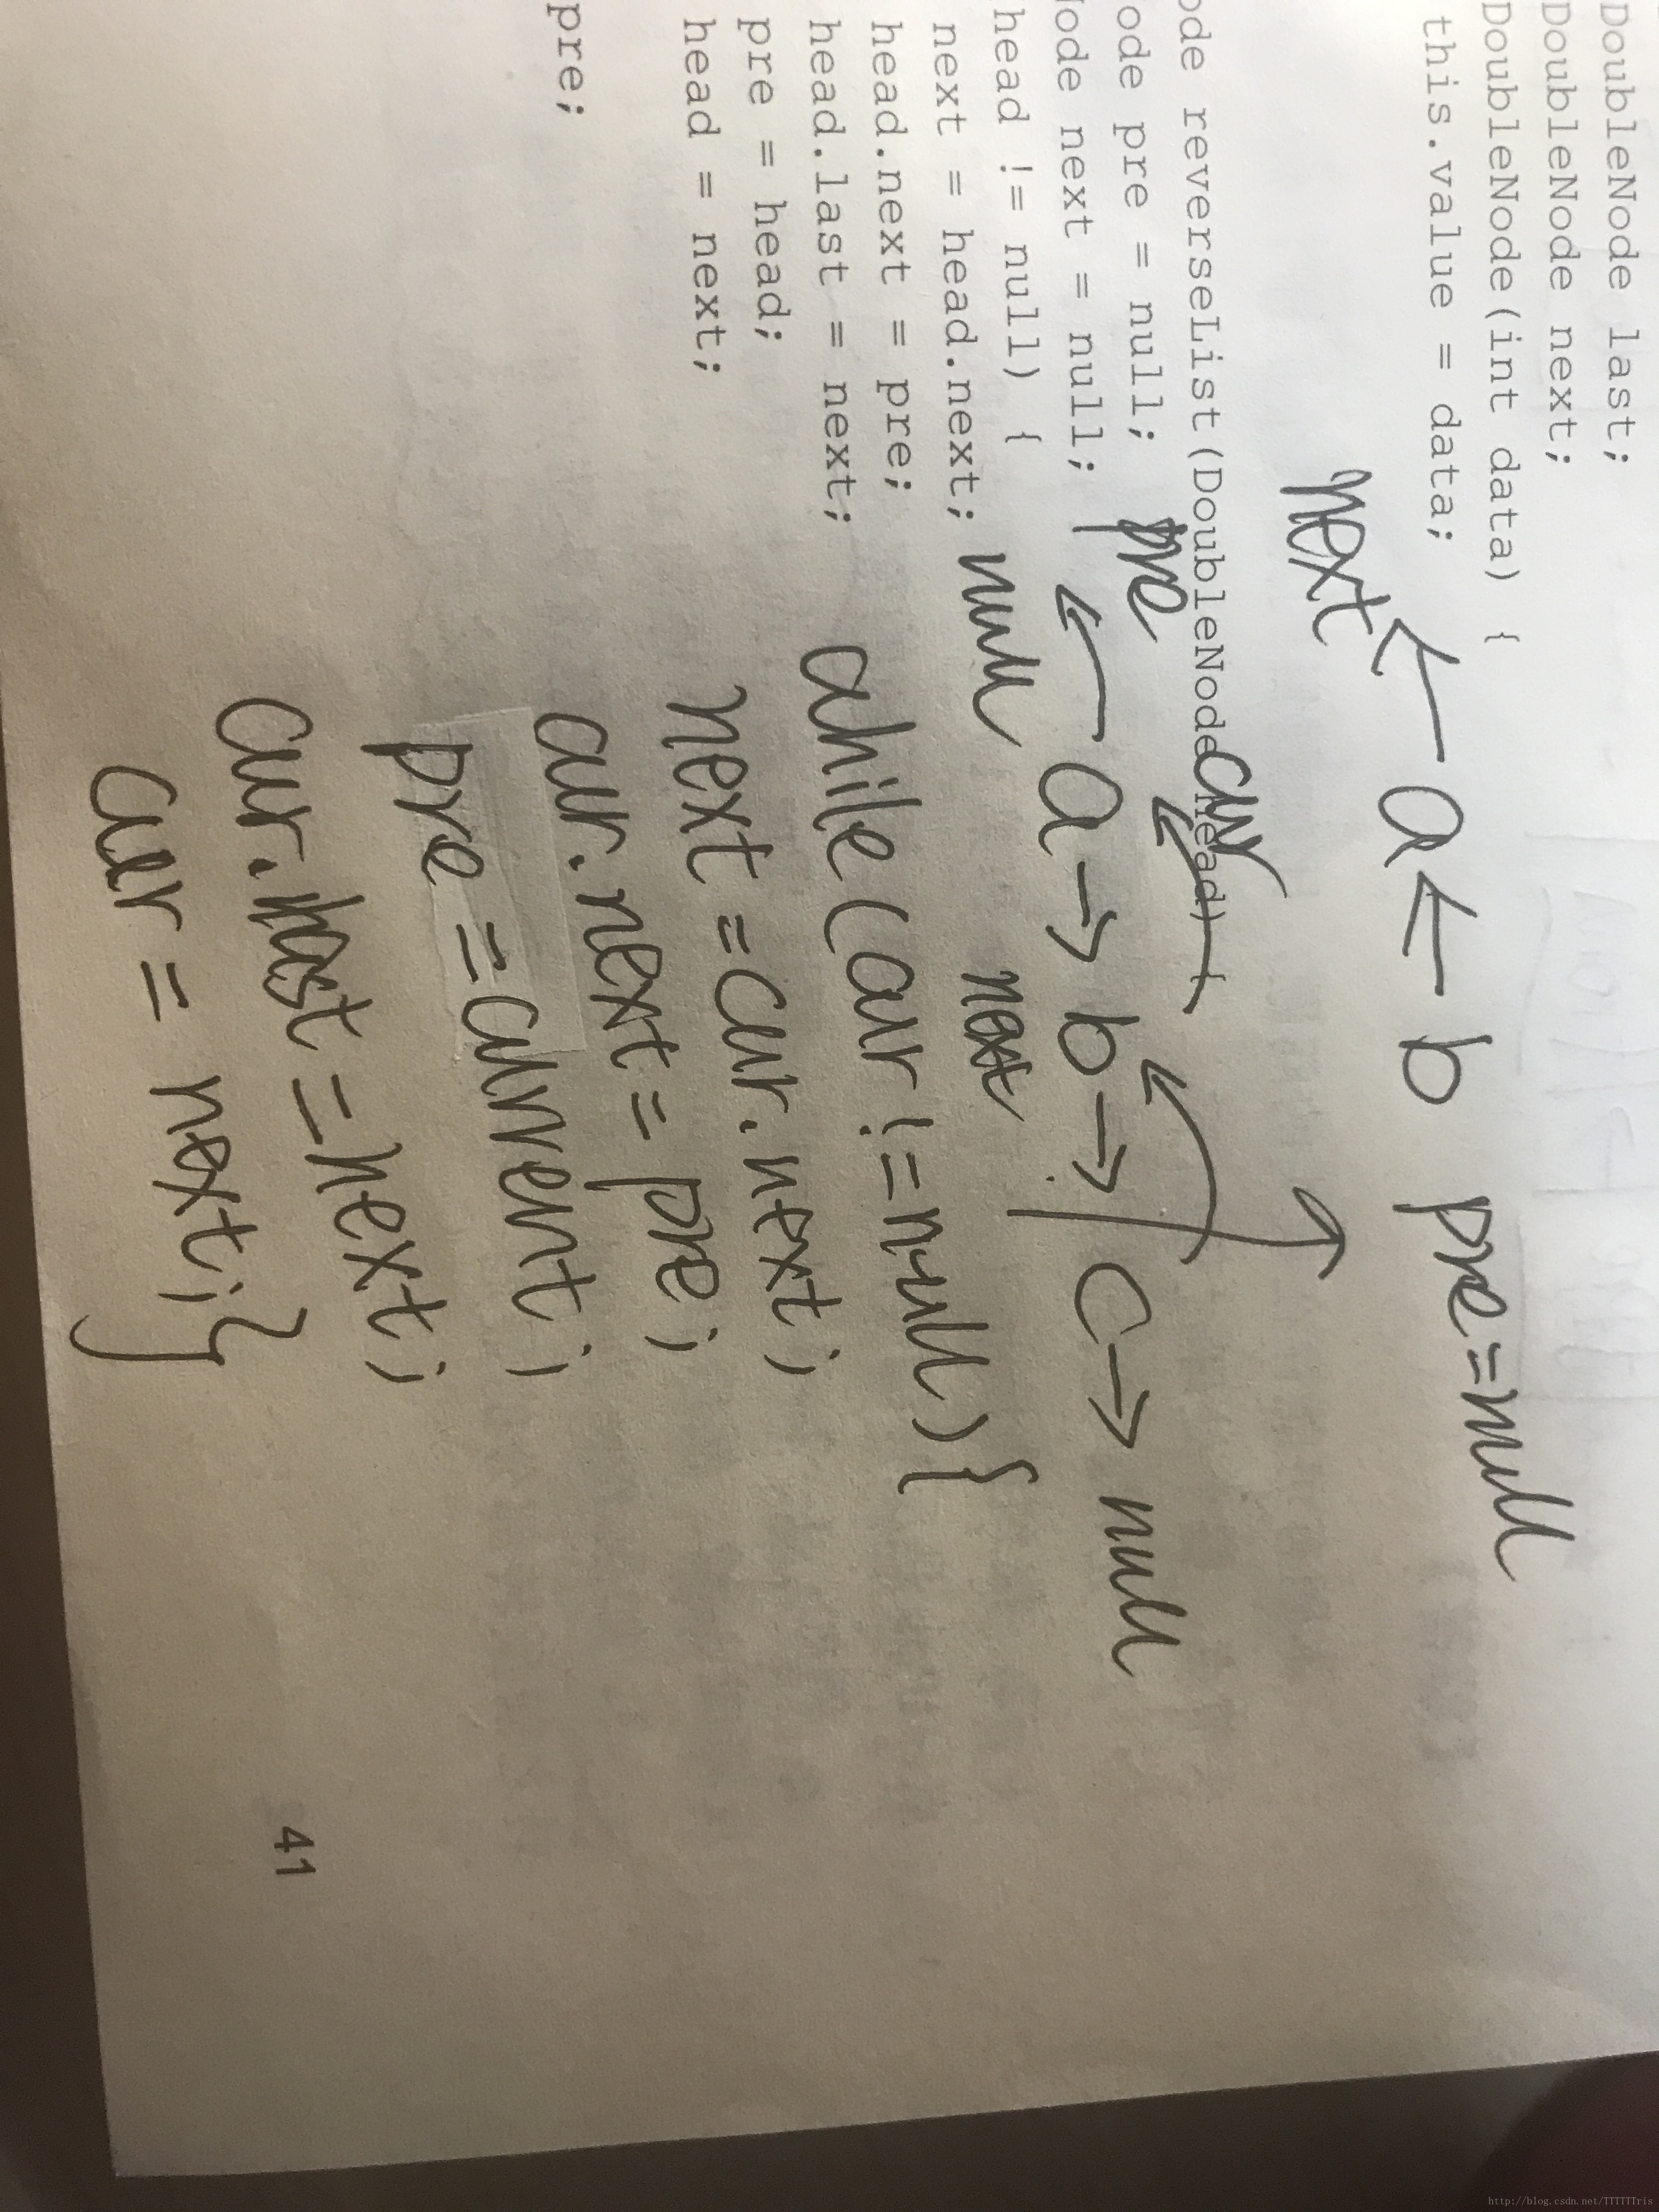 DoubleNode last;
DoubleNode next;
DoubleNode(int data) {
this.value = data;
next a b pre=null
ode reverseList(DoubleNode head) {
ode pre = null;
ode next = null;
head != null) {
next = head.next;
head.next = pre;
head.last = next;
pre = head;
head = next;
pre;
pre cur
null a b c null
next
while(cur!=null){
next=cur.next;
cur.next=pre;
pre=current;
cur.last=next;
cur=next;}
41
http://blog.csdn.net/TTTTTTris